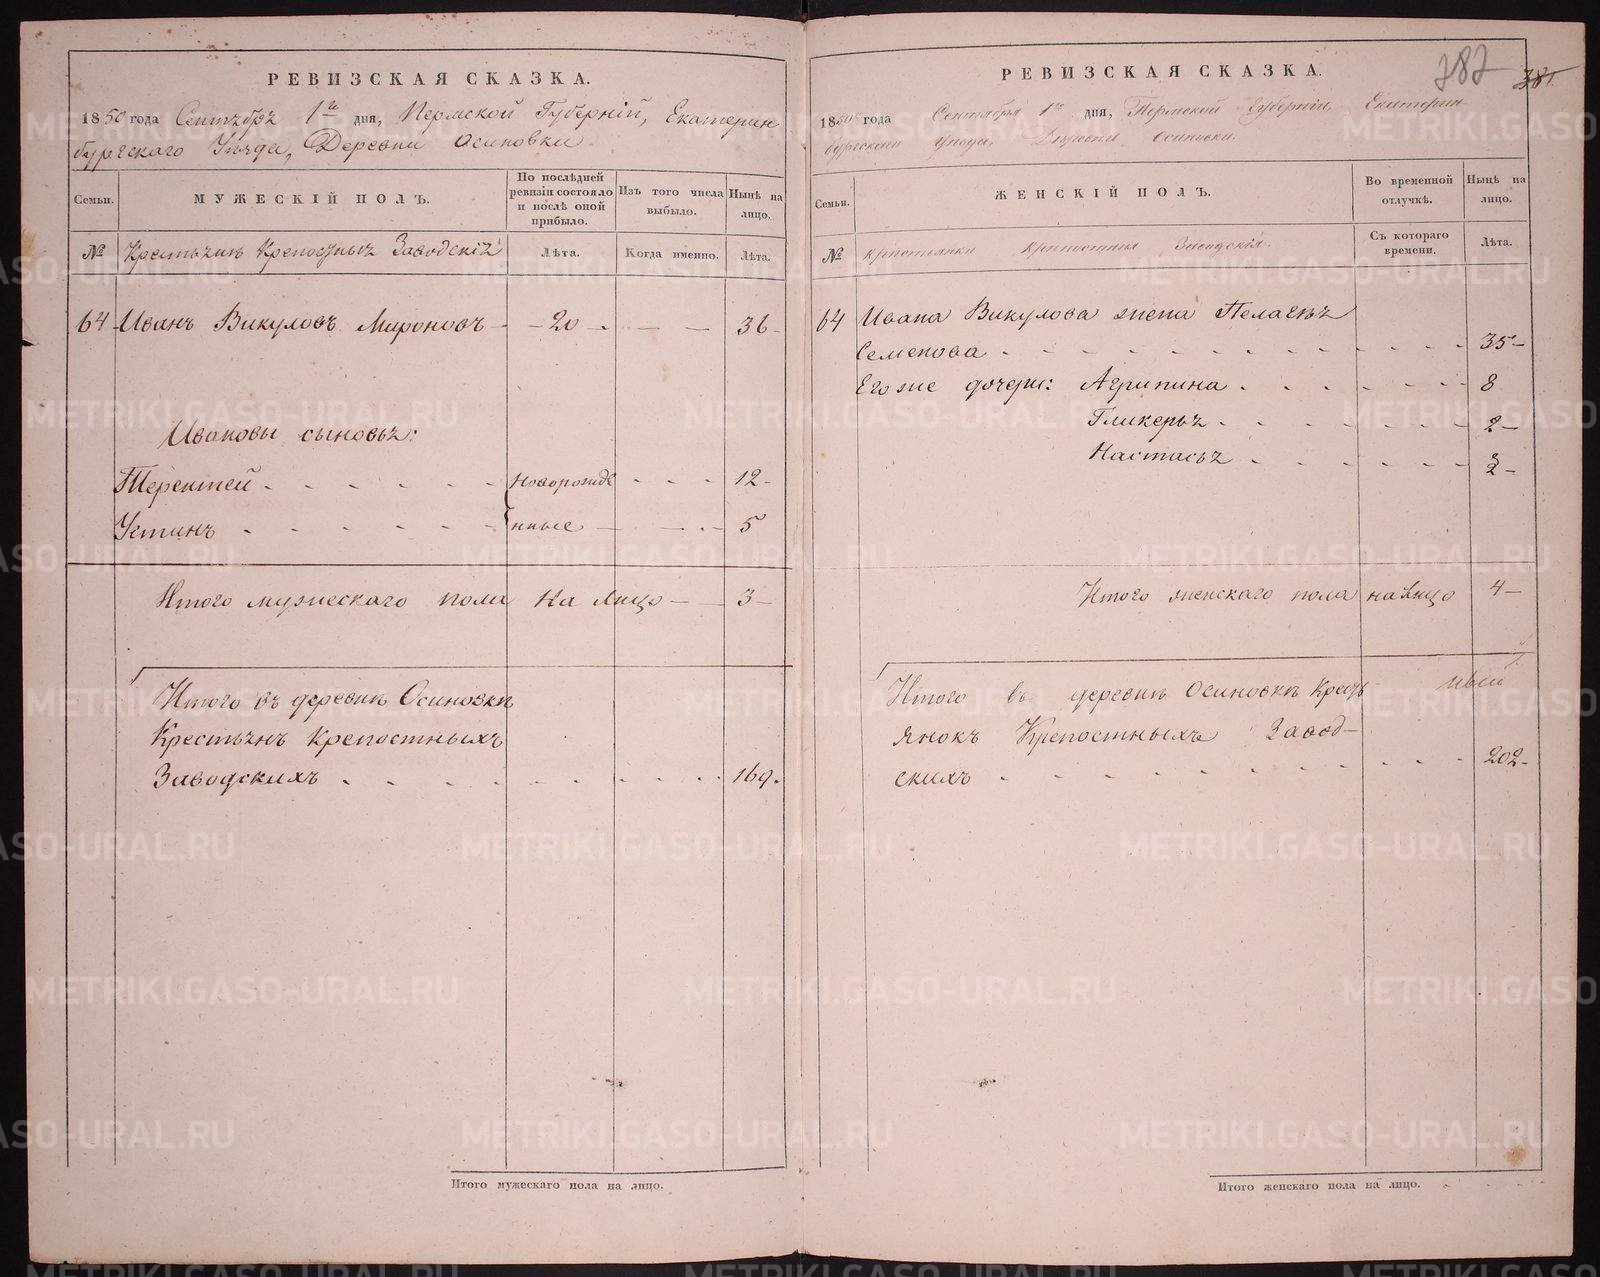 РЕВИЗСКАЯ СКАЗКА.
1850 года Сентября 1го дня, Пермской Губерніи, Екатерин
бургскаго Уѣзда, Деревни Осиновки
Семьи.
МУЖЕСКІЙ ПОЛЪ.
По послѣдней
ревизіи состояло
и послѣ оной
прибыло.
Изъ того числа
выбыло.
Нынѣ на
лицо.
№
Крестьянъ Крепостныхъ Заводскихъ
Лѣта.
Когда именно.
Лѣта.
64 Иванъ Викуловъ Мироновъ - 20 - 36
Ивановы сыновья:
Терентей Новорожде 12
Устинъ нные 5
Итого мужескаго пола на лицо 3
Итого въ деревнѣ Осиновкѣ
Крестьянъ Крепостныхъ
Заводскихъ 169.
Итого мужескаго пола на лицо.
387 381
РЕВИЗСКАЯ СКАЗКА.
1850 года Сентября 1го дня, Пермской Губерніи, Екатерин
бургскаго уѣзда, Деревни Осиновки.
Семьи.
ЖЕНСКІЙ ПОЛЪ.
Во временной
отлучкѣ.
Нынѣ на
лицо.
№
Крестьянки Крепостныя Заводскія.
Съ котораго
времени.
Лѣта.
64 Ивана Викулова жена Пелагея
Семенова 35
Его же дочери: Агрипина 8
Гликерья 2
Настасья
Итого женскаго пола на лицо 4
Итого въ деревнѣ Осиновкѣ Кресть
янокъ Крепостныхъ Завод-
скихъ 202
Итого женскаго пола на лицо.
METRIKI.GASO-URAL.RU